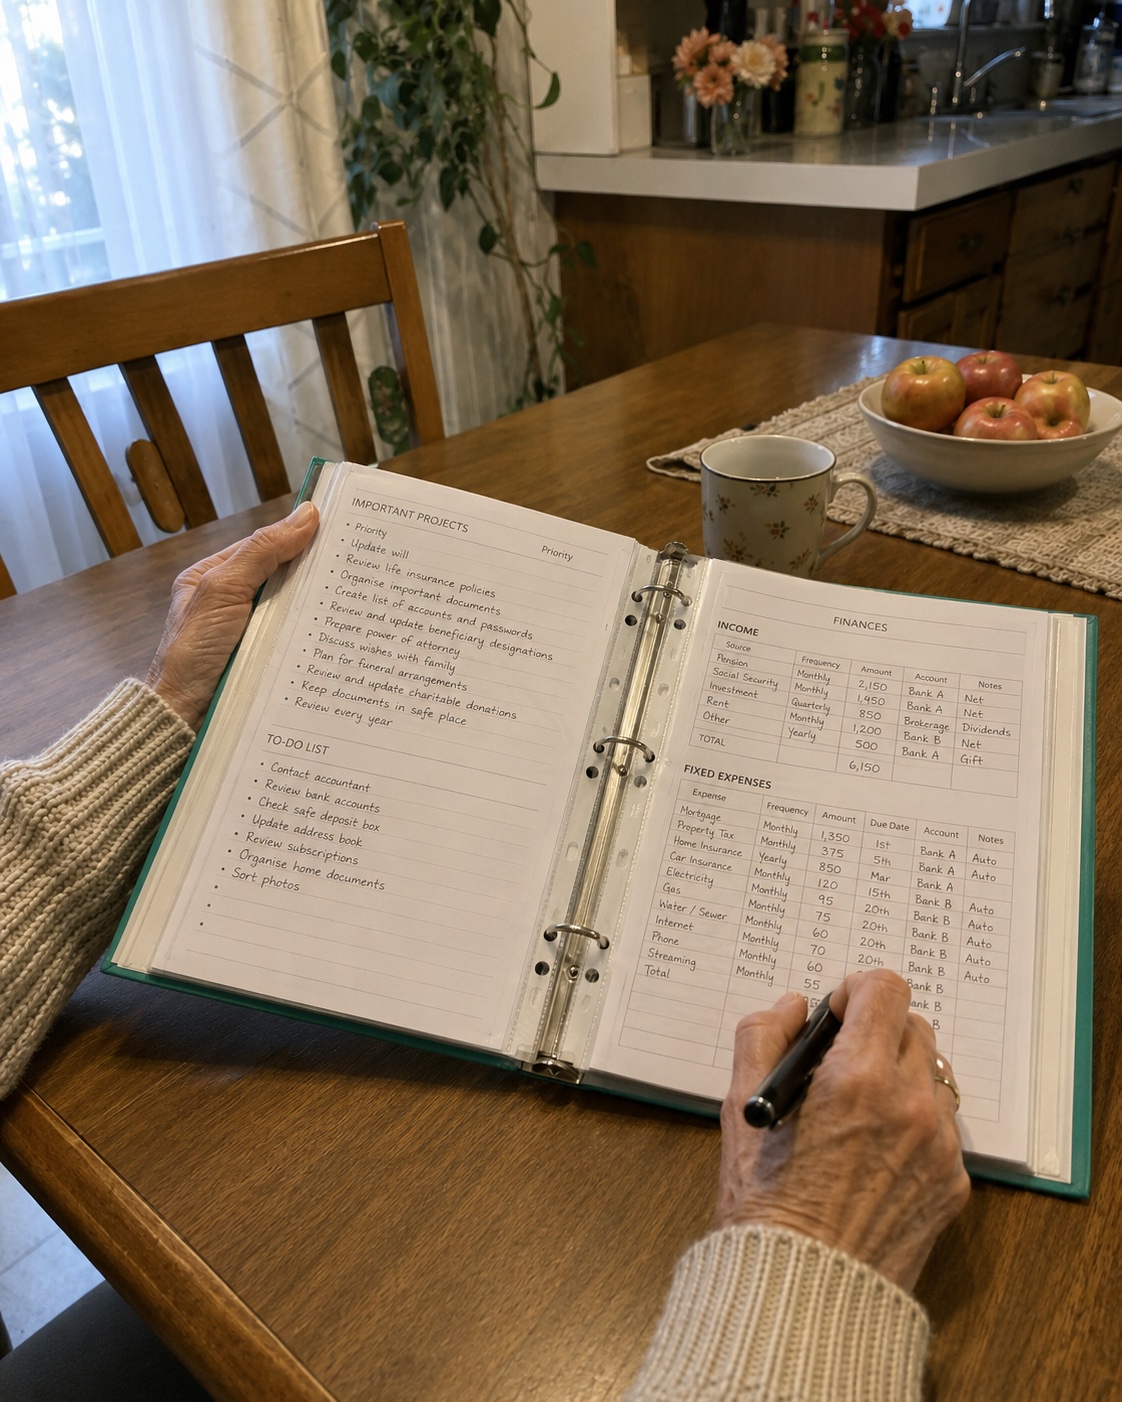 IMPORTANT PROJECTS
• Priority Priority
• Update will
• Review life insurance policies
• Organise important documents
• Create list of accounts and passwords
• Review and update beneficiary designations
• Prepare power of attorney
• Discuss wishes with family
• Plan for funeral arrangements
• Review and update charitable donations
• Keep documents in safe place
• Review every year
TO-DO LIST
• Contact accountant
• Review bank accounts
• Check safe deposit box
• Update address book
• Review subscriptions
• Organise home documents
• Sort photos
•
•
•
FINANCES
INCOME
Source Frequency Amount Account Notes
Pension Monthly 2,150 Bank A Net
Social Security Monthly 1,450 Bank A Net
Investment Quarterly 850 Brokerage Dividends
Rent Monthly 1,200 Bank B Net
Other Yearly 500 Bank A Gift
TOTAL 6,150
FIXED EXPENSES
Expense Frequency Amount Due Date Account Notes
Mortgage Monthly 1,350 1st Bank A Auto
Property Tax Monthly 375 5th Bank A Auto
Home Insurance Yearly 850 Mar Bank A
Car Insurance Monthly 120 15th Bank B Auto
Electricity Monthly 95 20th Bank B Auto
Gas Monthly 75 20th Bank B Auto
Water / Sewer Monthly 60 20th Bank B Auto
Internet Monthly 70 20th Bank B
Phone Monthly 60 Bank B
Streaming Monthly 55 B
Total